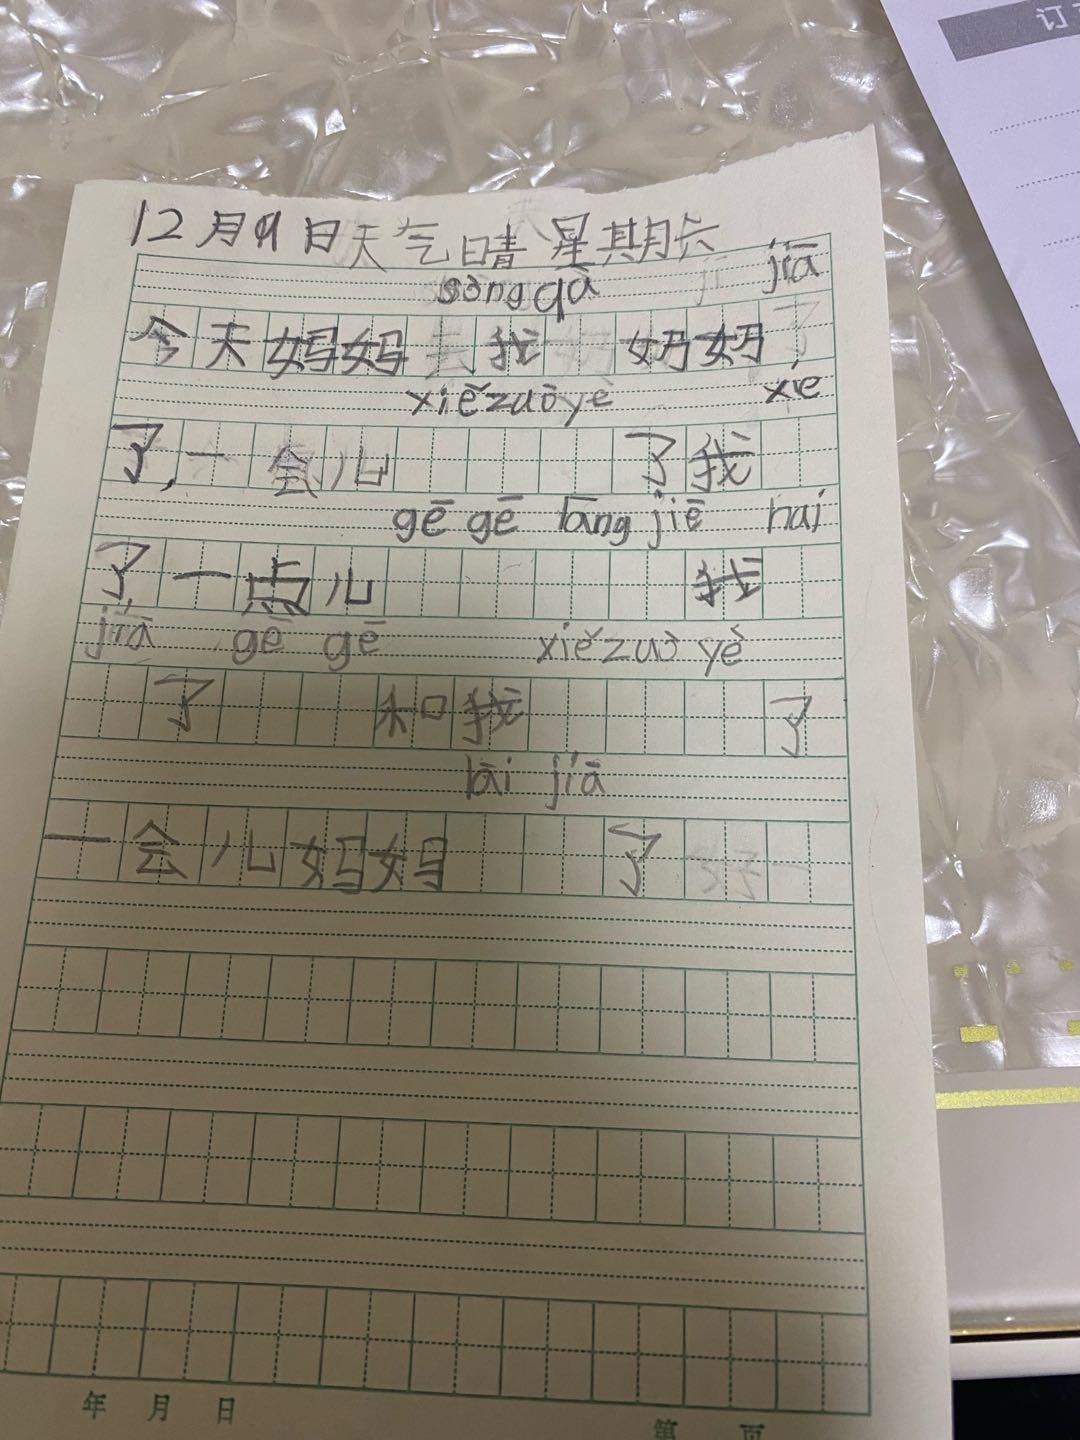 订
12月9日天气晴星期六
sòng qù jiā
今天妈妈 我 奶奶
xiězuòyè xiě
了,一会儿 了我
gē gē lāng jiē nai
了一点儿 我
jiā gē gē xiězuò yè
了 和我 了
lāi jiā
一会儿妈妈 了
年 月 日
第 页